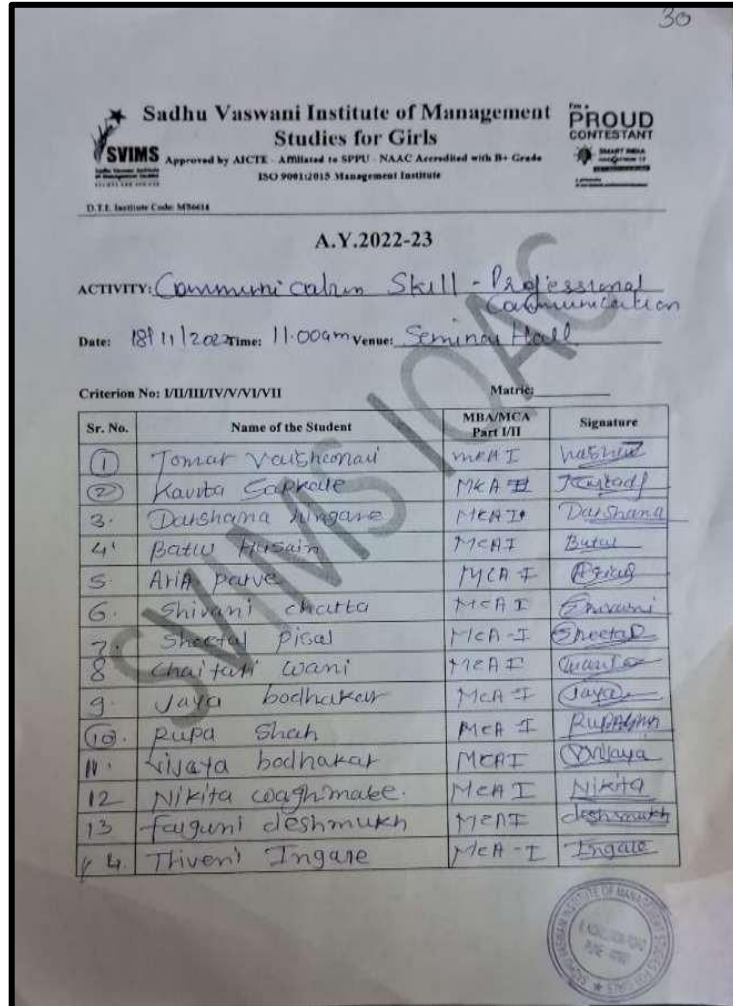 30
Sadhu Vaswani Institute of Management
Studies for Girls
SVIMS
Approved by AICTE - Affiliated to SPPU - NAAC Accredited with B+ Grade
ISO 9001:2015 Management Institute
I'm a
PROUD
CONTESTANT
SMART INDIA
D.T.E. Institute Code: MB6614
A.Y.2022-23
ACTIVITY: Communication Skill - Professional
Communication
Date: 18/11/2022 Time: 11.00am Venue: Seminar Hall
Criterion No: I/II/III/IV/V/VI/VII Matric:
Sr. No. Name of the Student MBA/MCA Part I/II Signature
1 Tomar Vaishanavi MCA I
2 Kavita Sapkale MCA I
3. Darshana hingane MCA I Darshana
4. Batul Husain MCA I Batul
5. Aria parve MCA I
6. Shivani chatta MCA I Shivani
7. Sheetal Pisal MCA-I Sheetal
8 Chaitali Wani MCA I
9. Jaya bodhakar MCA I Jaya
10. Rupa Shah MCA I
11. Vijaya bodhakar MCA I Vijaya
12 Nikita waghmare. MCA I Nikita
13 falguni deshmukh MCA I deshmukh
14. Triveni Ingale MCA-I Ingale
SVIMS IQAC